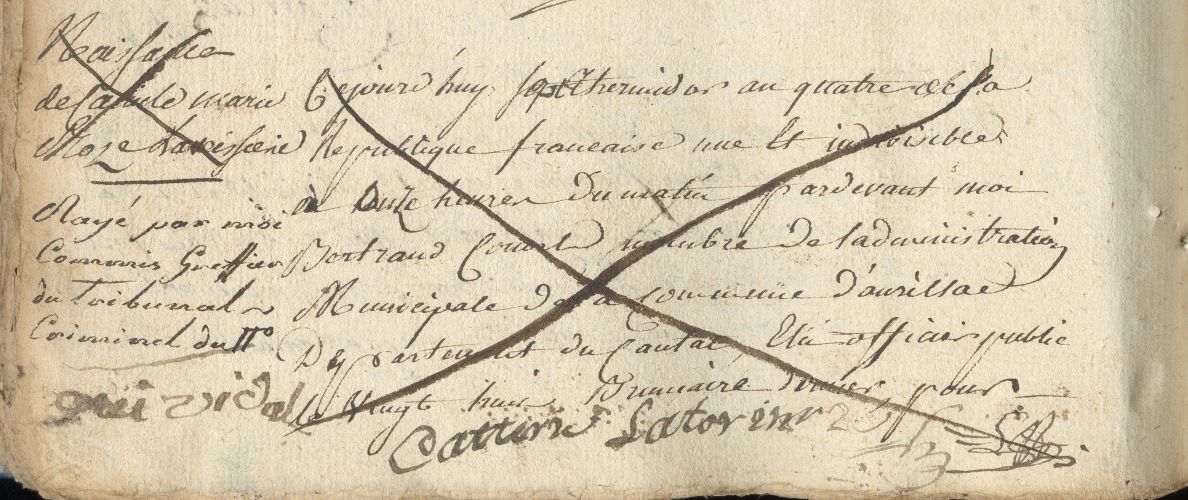 Naissance
de Cécile marie
Roze
Rayé par moi
Commis Greffier
du Tribunal
Criminel du
vidal
Cejourd'huy sept thermidor an quatre de la
Republique francaise une Et indivisible
à onze heures du matin pardevant moi
Bertrand membre de l'administration
Municipale de la Commune d'aurillac
Departement du Cantal, Elu officier public
le Vingt huit Brumaire dernier pour
Cattirine